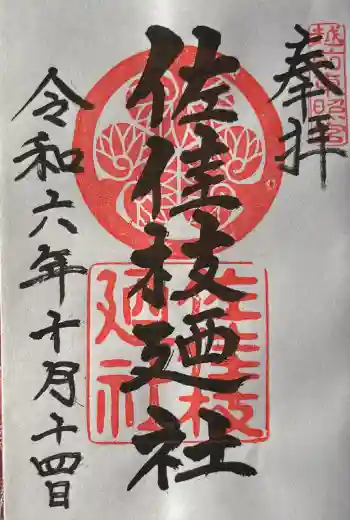 奉拝
越前東照宮
佐佳枝廼社
佐佳枝
廼社
令和六年十月十四日